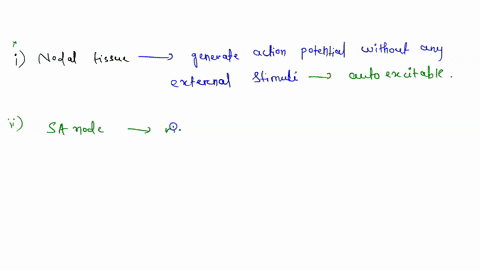 i) Nodal tissue → generate action potential without any
external stimuli → autoexcitable.
ii) SA node →